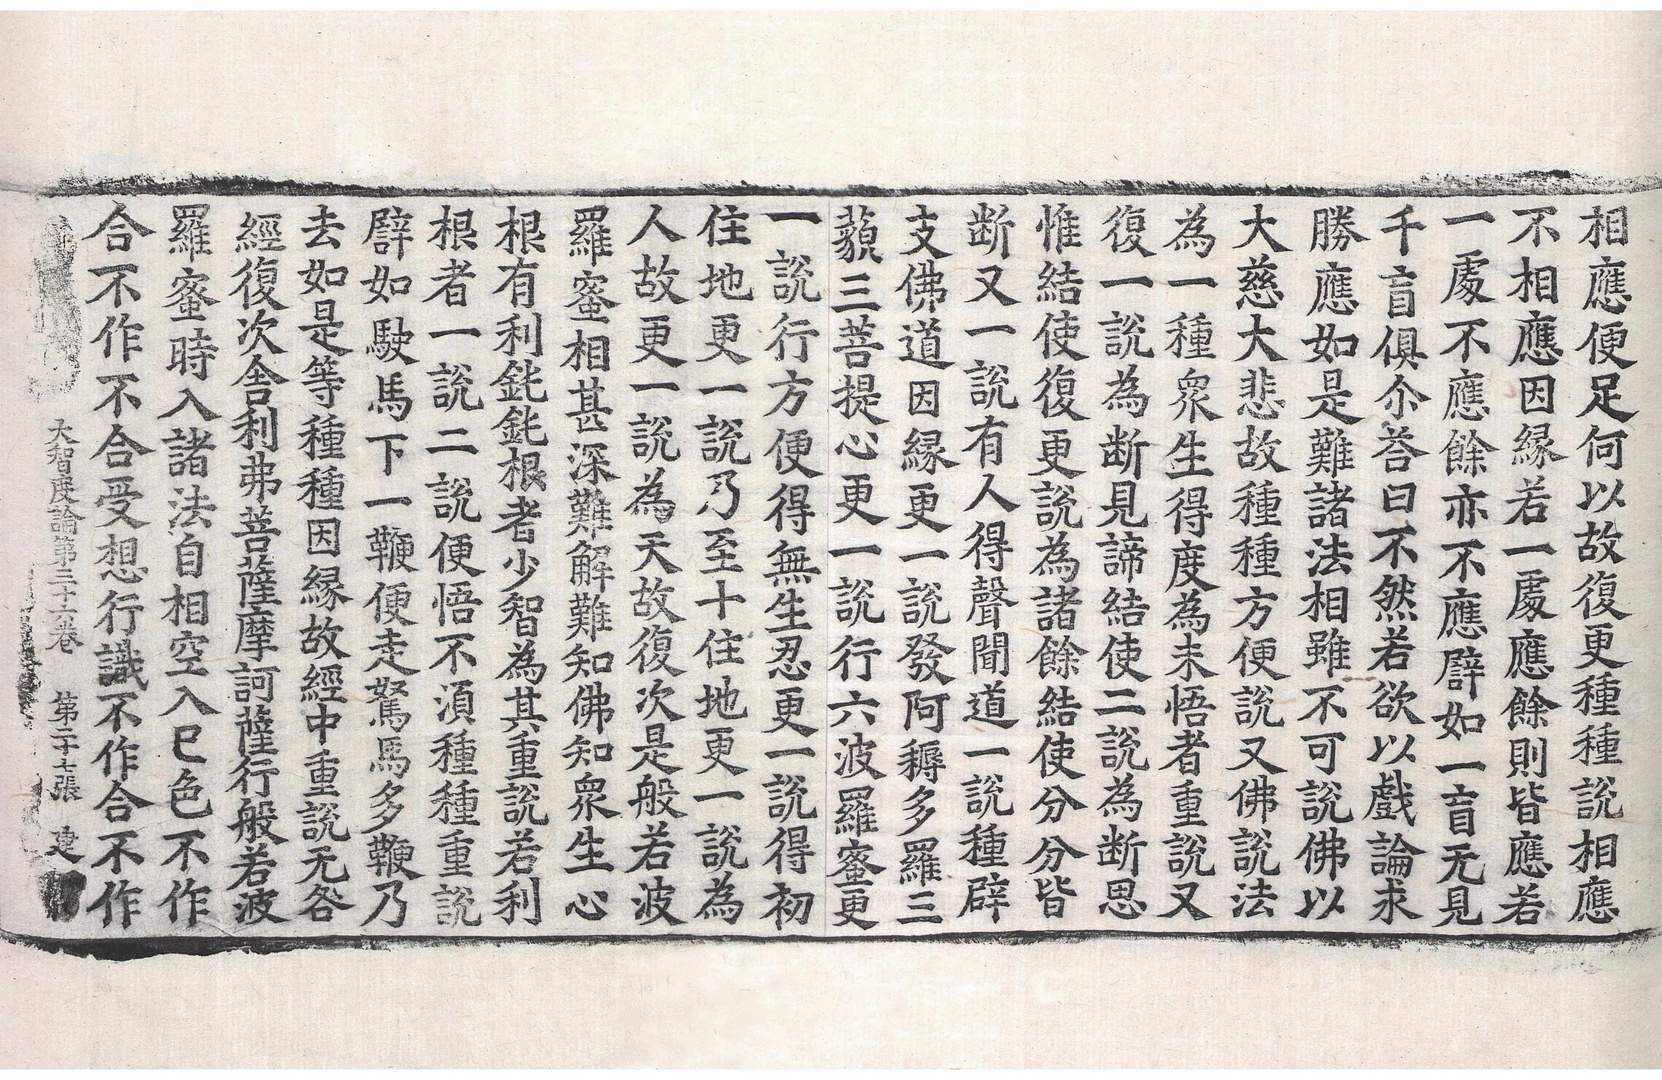 相應便足何以故復更種種說相應
不相應因緣若一處應餘則皆應若
一處不應餘亦不應譬如一盲无見
千盲俱尒荅曰不然若欲以戲論求
勝應如是難諸法相雖不可說佛以
大慈大悲故種種方便說又佛說法
為一種衆生得度為未悟者重說又
復一說為斷見諦結使二說為斷思
惟結使復更說為諸餘結使分分皆
斷又一說有人得聲聞道一說種辟
支佛道因緣更一說發阿耨多羅三
藐三菩提心更一說行六波羅蜜更
一說行方便得無生忍更一說得初
住地更一說乃至十住地更一說為
人故更一說為天故復次是般若波
羅蜜相甚深難解難知佛知衆生心
根有利鈍鈍根者少智為其重說若利
根者一說二說便悟不湏種種重說
譬如駛馬下一鞭便走駑馬多鞭乃
去如是等種種因緣故經中重說无咎
經復次舍利弗菩薩摩訶薩行般若波
羅蜜時入諸法自相空入已色不作
合不作不合受想行識不作合不作
大智度論第三十六卷 第二十七張 建